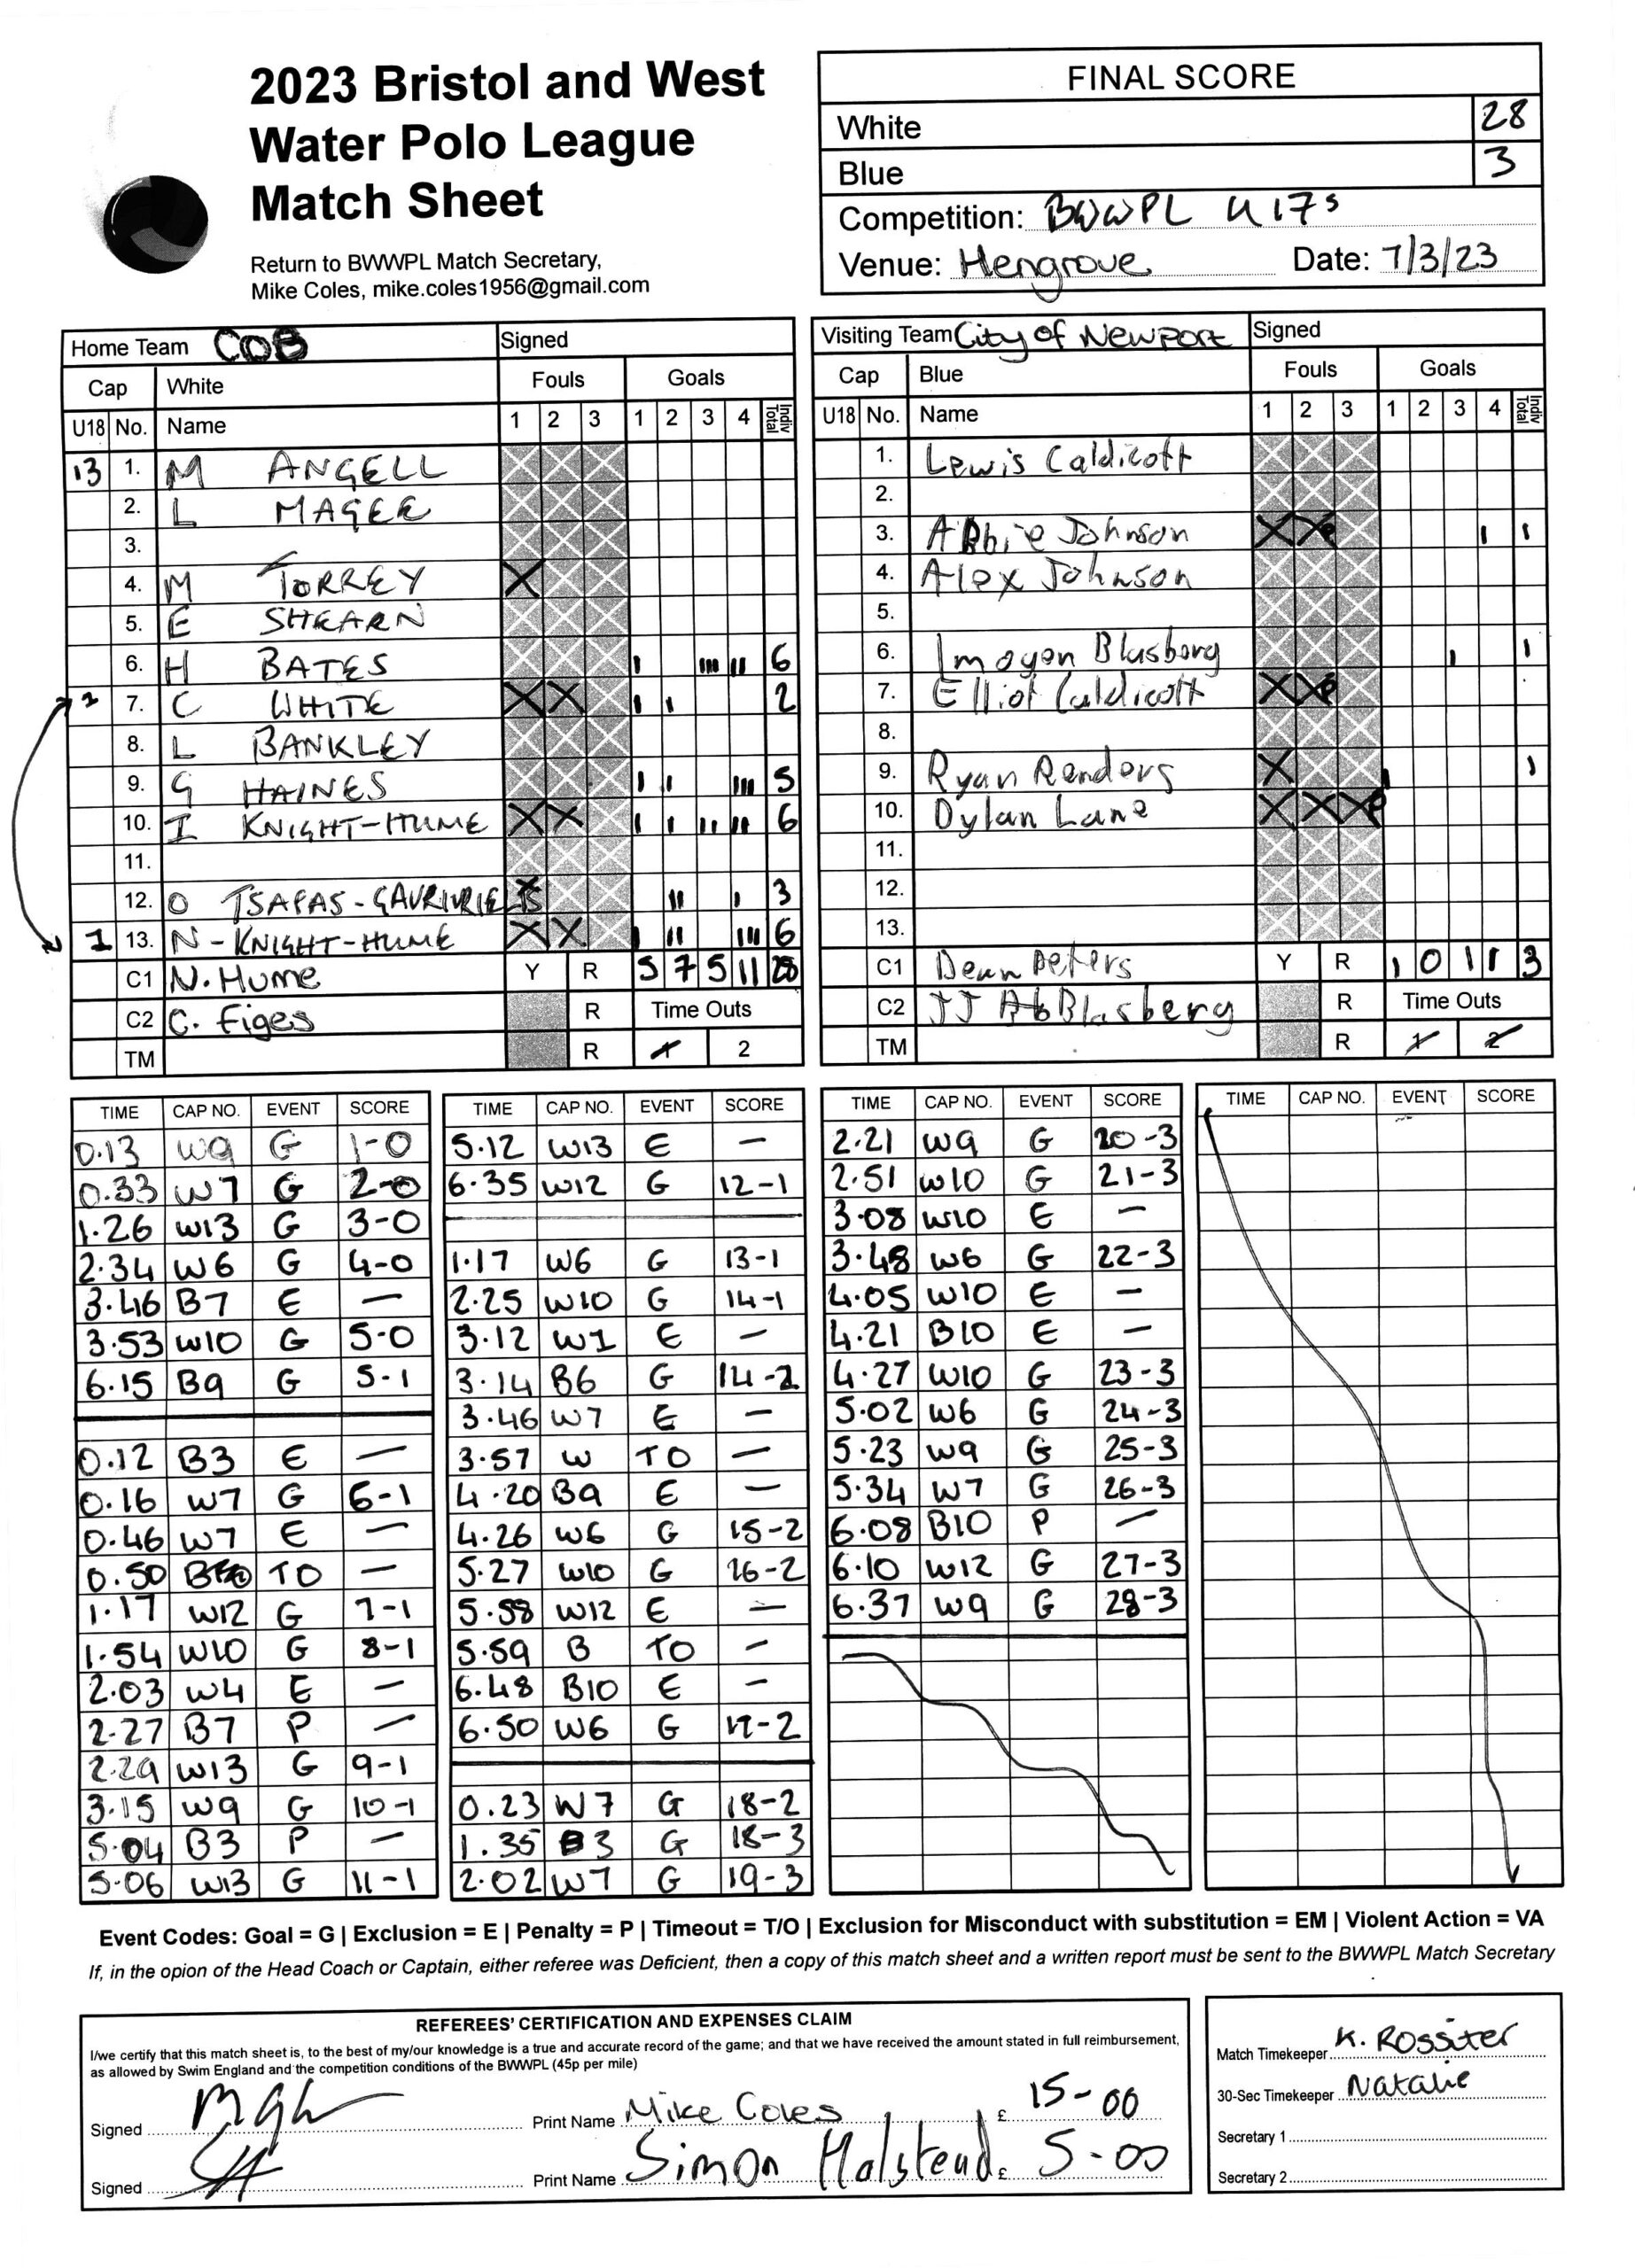 2023 Bristol and West
Water Polo League
Match Sheet
Return to BWWPL Match Secretary,
Mike Coles, mike.coles1956@gmail.com
FINAL SCORE
White 28
Blue 3
Competition: BWWPL U17s
Venue: Hengrove Date: 7/3/23
Home Team COB Signed
Cap White Fouls Goals
U18 No. Name 1 2 3 1 2 3 4 Indiv Total
13 1. M ANGELL
2. L MAGEE
3.
4. M TORREY X
5. E SHEARN
6. H BATES I III II 6
2 7. C WHITE X X I I 2
8. L BANKLEY
9. G HAINES I I III 5
10. I KNIGHT-HUME X X I I II II 6
11.
12. O TSAPAS-GAVRIURIELIS X II I 3
1 13. N-KNIGHT-HUME X X I II III 6
C1 N. Hume Y R 5 7 5 11 28
C2 C. Figes R Time Outs
TM R 1 2
Visiting Team City of Newport Signed
Cap Blue Fouls Goals
U18 No. Name 1 2 3 1 2 3 4 Indiv Total
1. Lewis Caldicott
2.
3. Abbie Johnson X X P I I
4. Alex Johnson
5.
6. Imogen Blasberg I I
7. Elliot Caldicott X X P
8.
9. Ryan Renders X I I
10. Dylan Lane X X X P
11.
12.
13.
C1 Dean Peters Y R 1 0 1 1 3
C2 JJ Blasberg R Time Outs
TM R 1 2
TIME CAP NO. EVENT SCORE
0.13 W9 G 1-0
0.33 W7 G 2-0
1.26 W13 G 3-0
2.34 W6 G 4-0
3.46 B7 E —
3.53 W10 G 5-0
6.15 B9 G 5-1
0.12 B3 E —
0.16 W7 G 6-1
0.46 W7 E —
0.50 B TO —
1.17 W12 G 7-1
1.54 W10 G 8-1
2.03 W4 E —
2.27 B7 P —
2.29 W13 G 9-1
3.15 W9 G 10-1
5.04 B3 P —
5.06 W13 G 11-1
TIME CAP NO. EVENT SCORE
5.12 W13 E —
6.35 W12 G 12-1
1.17 W6 G 13-1
2.25 W10 G 14-1
3.12 W1 E —
3.14 B6 G 14-2
3.46 W7 E —
3.57 W TO —
4.20 B9 E —
4.26 W6 G 15-2
5.27 W10 G 16-2
5.58 W12 E —
5.59 B TO —
6.48 B10 E —
6.50 W6 G 17-2
0.23 W7 G 18-2
1.35 B3 G 18-3
2.02 W7 G 19-3
TIME CAP NO. EVENT SCORE
2.21 W9 G 20-3
2.51 W10 G 21-3
3.08 W10 E —
3.48 W6 G 22-3
4.05 W10 E —
4.21 B10 E —
4.27 W10 G 23-3
5.02 W6 G 24-3
5.23 W9 G 25-3
5.34 W7 G 26-3
6.08 B10 P —
6.10 W12 G 27-3
6.37 W9 G 28-3
TIME CAP NO. EVENT SCORE
Event Codes: Goal = G | Exclusion = E | Penalty = P | Timeout = T/O | Exclusion for Misconduct with substitution = EM | Violent Action = VA
If, in the opion of the Head Coach or Captain, either referee was Deficient, then a copy of this match sheet and a written report must be sent to the BWWPL Match Secretary
REFEREES' CERTIFICATION AND EXPENSES CLAIM
I/we certify that this match sheet is, to the best of my/our knowledge is a true and accurate record of the game; and that we have received the amount stated in full reimbursement,
as allowed by Swim England and the competition conditions of the BWWPL (45p per mile)
Signed Print Name Mike Coles £ 15-00
Signed Print Name Simon Halstead £ 5-00
Match Timekeeper K. Rossiter
30-Sec Timekeeper Natalie
Secretary 1
Secretary 2